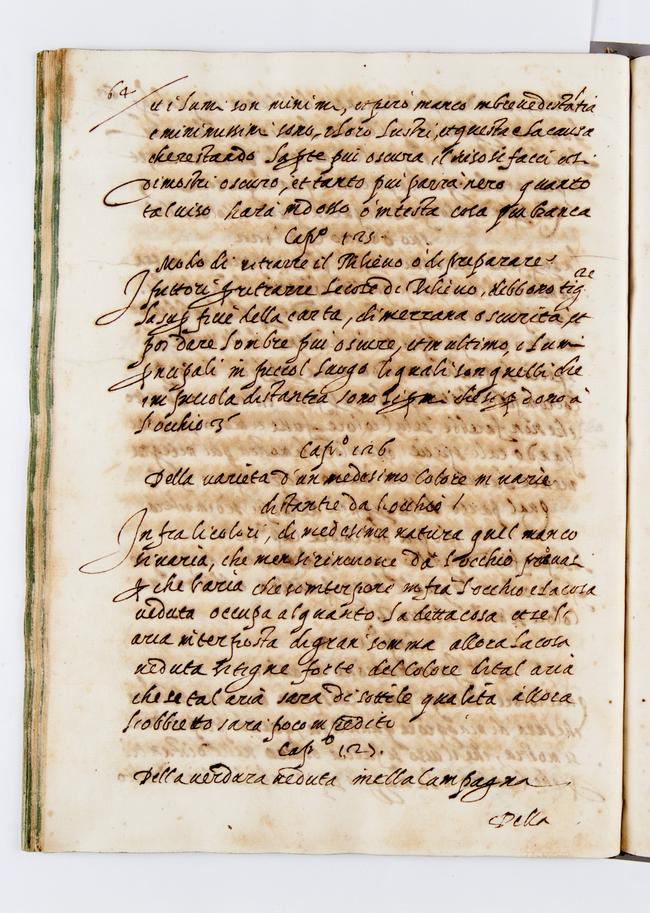 64
et i lumi son minimi, et però manco in breve distātia
e minimissimi sono i loro lustri, et questa e la causa
che restando la pte piu oscura il viso si facci et si
dimostri oscuro, et tanto piu parrà nero quanto
tal viso harà indosso o in testa cosa piu bianca
Capo 125.
Modo di ritrarre il Rilievo o di preparare
I pittori p ritrarre le cose di Rilievo, debbono tigre
la supfitie della carta, di mezzana oscurità et
poi dare l'ombre piu oscure, et in ultimo, i lumi
principali in piccol luogo li quali son quelli che
in piccola distantia sono li pmi che si pdono à
l'occhio
Capo 126
Della varietà d'un medesimo Colore in varie
distantie da l'occhio
Infra li colori, di medesima natura quel manco
si varia, che men si rimuove da l'occhio provasi
p che l'aria che s'interpone infra l'occhio e la cosa
veduta occupa alquanto la detta cosa et se l'
aria interposta di gran somma allora la cosa
veduta si tigne forte del Colore di tal aria
che se tal aria sara di sottile qualita allora
l'obbietto sara poco impedito
Capo 127.
Della verdura veduta nella Campagna
Della